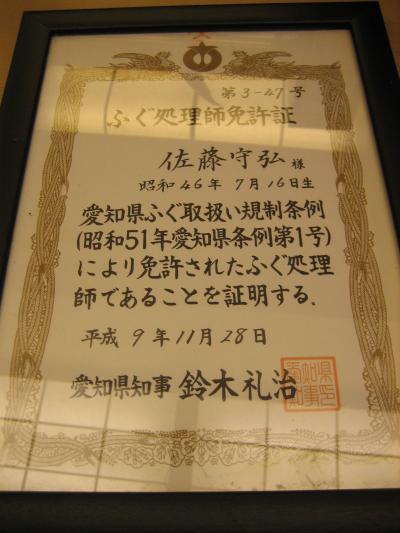 第3-47号
ふぐ処理師免許証
佐藤守弘様
昭和46年7月16日生
愛知県ふぐ取扱い規制条例
(昭和51年愛知県条例第1号)
により免許されたふぐ処理
師であることを証明する.
平成9年11月28日
愛知県知事 鈴木礼治
愛知県知事印